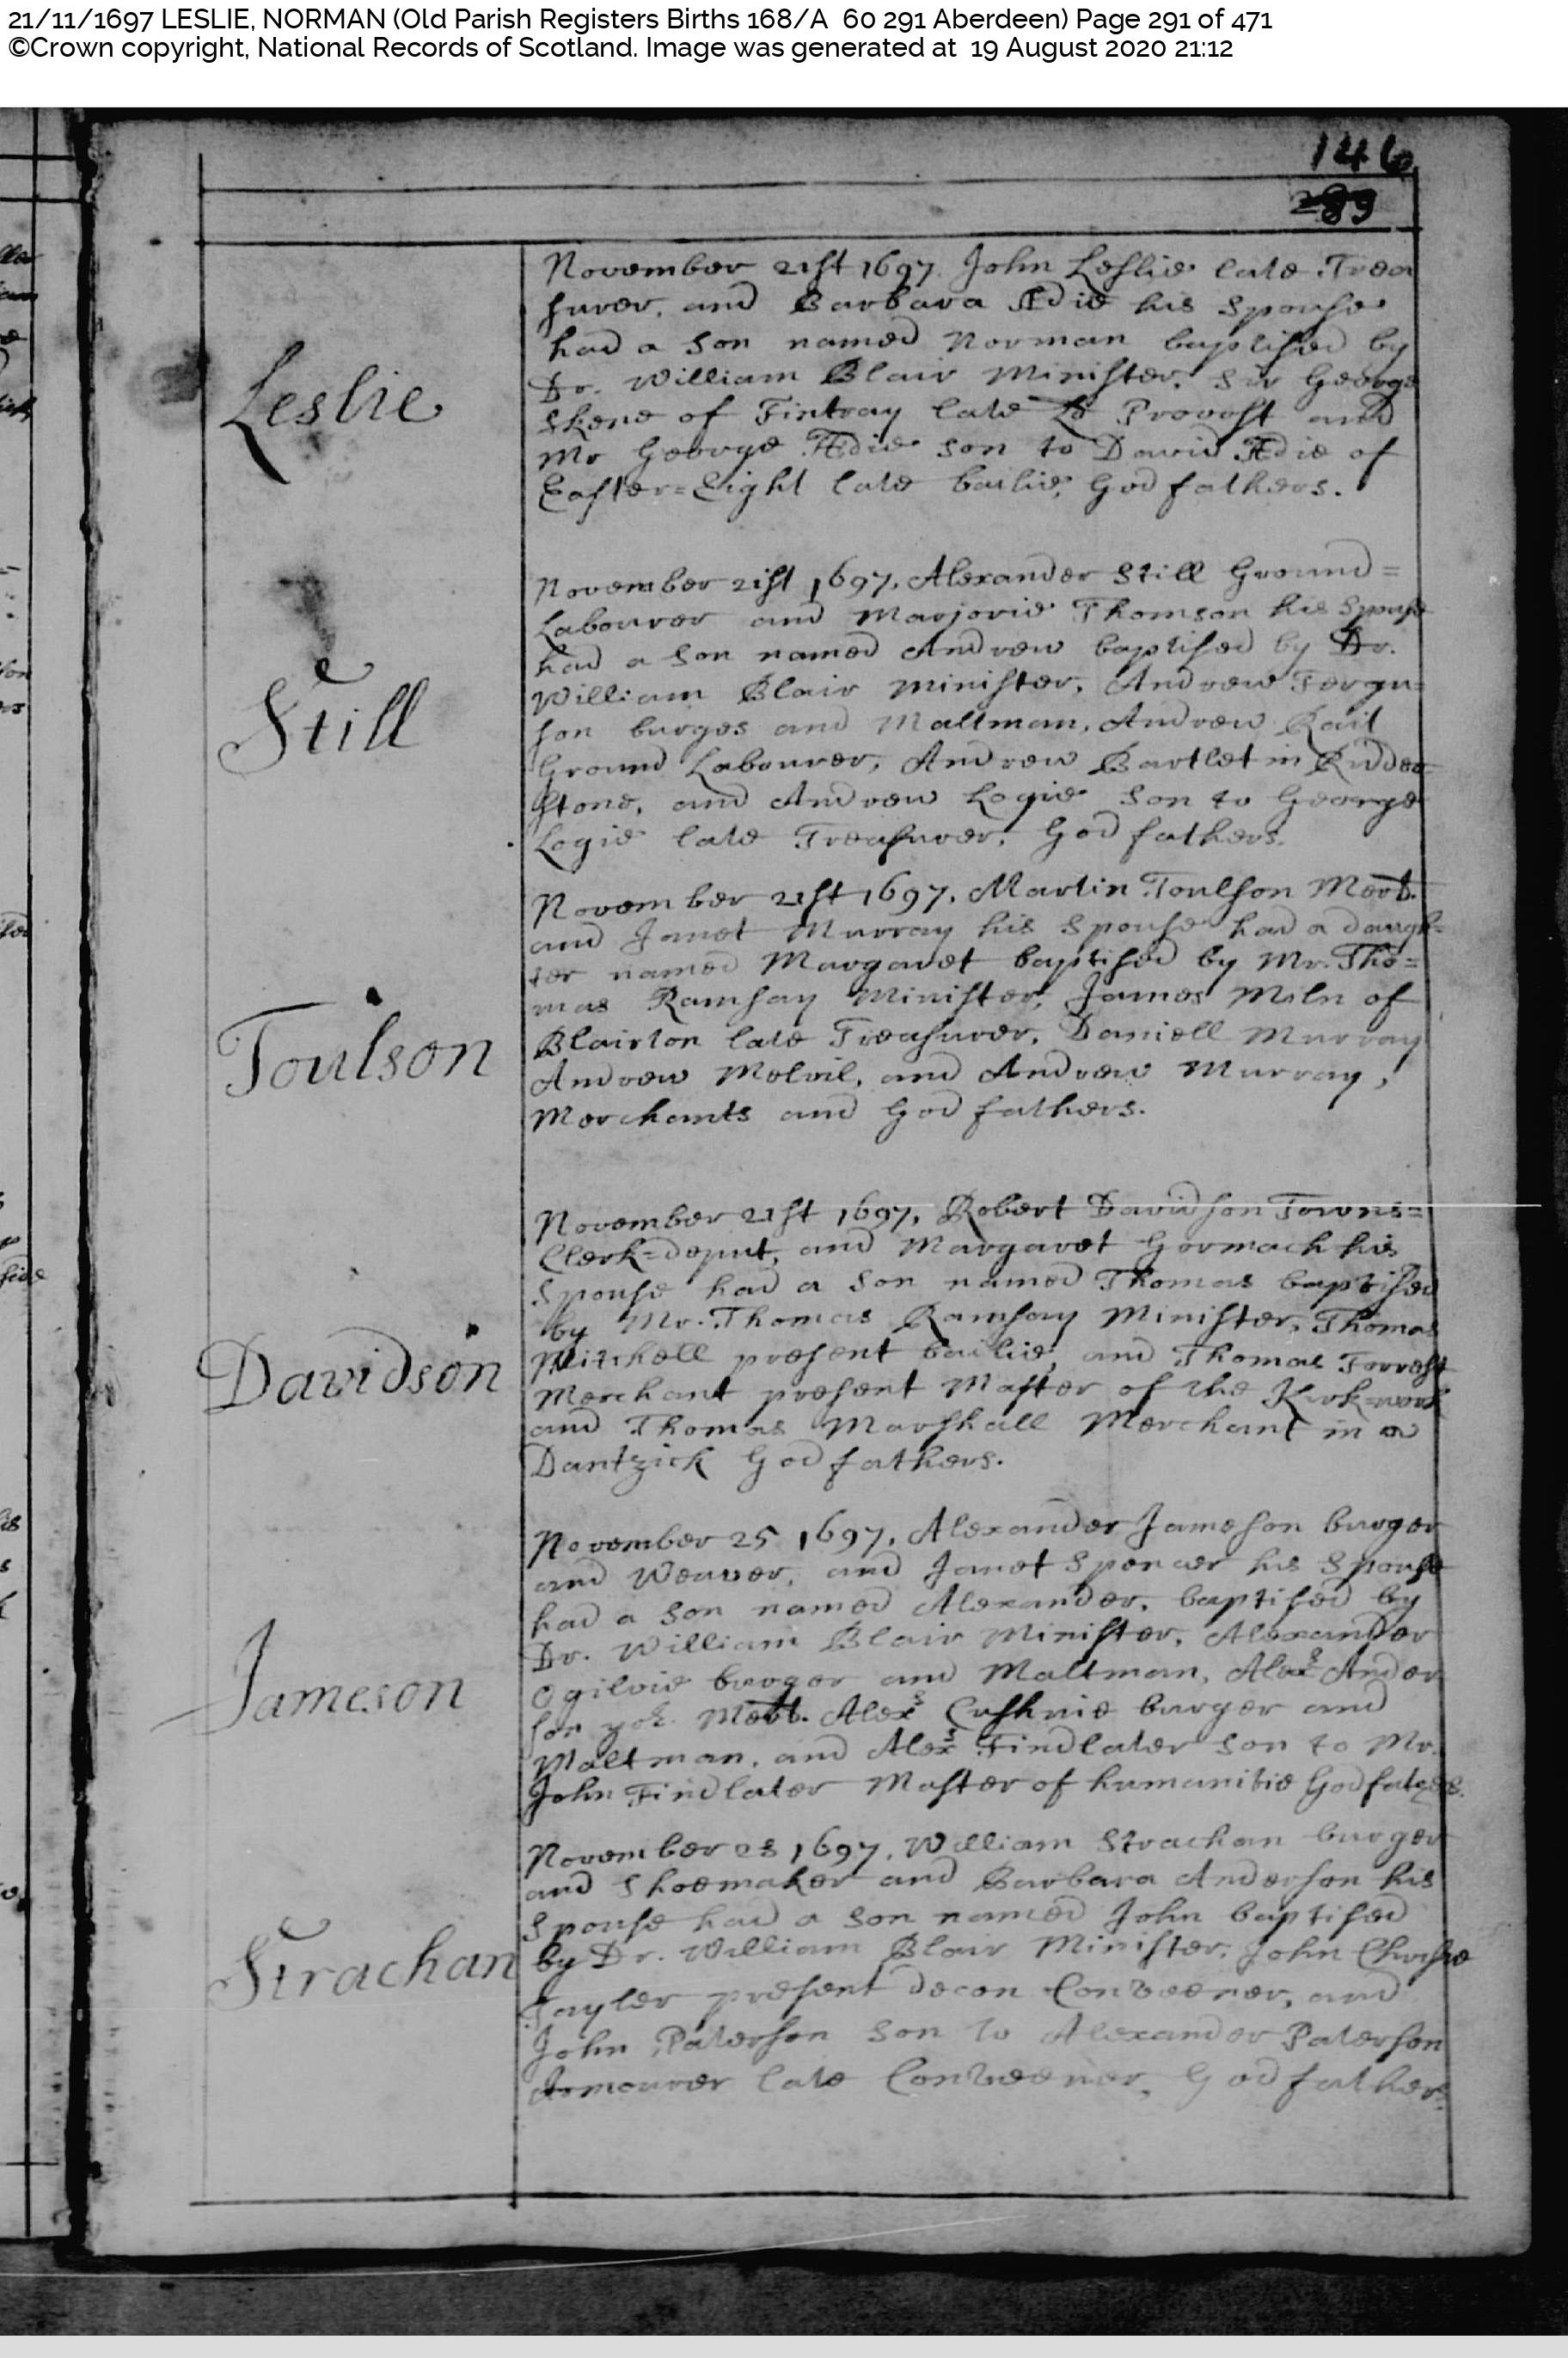 21/11/1697 LESLIE, NORMAN (Old Parish Registers Births 168/A 60 291 Aberdeen) Page 291 of 471
©Crown copyright, National Records of Scotland. Image was generated at 19 August 2020 21:12
146
289
Leslie
November 21st 1697. John Leslie late Trea
surer, and Barbara Adie his Spouse
had a son named Norman baptised by
Dr. William Blair Minister, Sir George
Skene of Fintray late Provost and
Mr George Adie son to David Adie of
Easter=Eight late bailie, Godfathers.
Still
November 21st 1697, Alexander Still Ground=
Labourer and Marjorie Thomson his Spouse
had a son named Andrew baptised by Dr.
William Blair Minister, Andrew Fergu=
son burges and Maltman, Andrew Rait
Ground Labourer, Andrew Bartlet in Rudder
stone, and Andrew Logie son to George
Logie late Treasurer, Godfathers.
Toulson
November 21st 1697, Martin Toulson Mert.
and Janet Murray his Spouse had a daugh=
ter named Margaret baptised by Mr. Tho=
mas Ramsay Minister, James Miln of
Blairton late Treasurer, Daniell Murray
Andrew Melvil, and Andrew Murray,
Merchants and Godfathers.
Davidson
November 21st 1697, Robert Davidson Towns=
Clerk=deput, and Margaret Gormack his
Spouse had a son named Thomas baptised
by Mr. Thomas Ramsay Minister, Thomas
Mitchell present bailie, and Thomas Forrest
Merchant present Master of the Kirk=work
and Thomas Marshall Merchant in
Dantzick Godfathers.
Jameson
November 25 1697, Alexander Jameson burger
and Weaver, and Janet Spencer his Spouse
had a son named Alexander, baptised by
Dr. William Blair Minister, Alexander
Ogilvie burger and Maltman, Alexr Ander
son Mert. Alexr Cushnie burger and
Maltman, and Alexr Findlater son to Mr.
John Findlater Master of humanitie Godfathers.
Strachan
November 28 1697, William Strachan burger
and Shoemaker and Barbara Anderson his
Spouse had a son named John baptised
by Dr. William Blair Minister, John
Tayler present Decon Conveener, and
John Paterson son to Alexander Paterson
Armourer late Conveener, Godfathers.